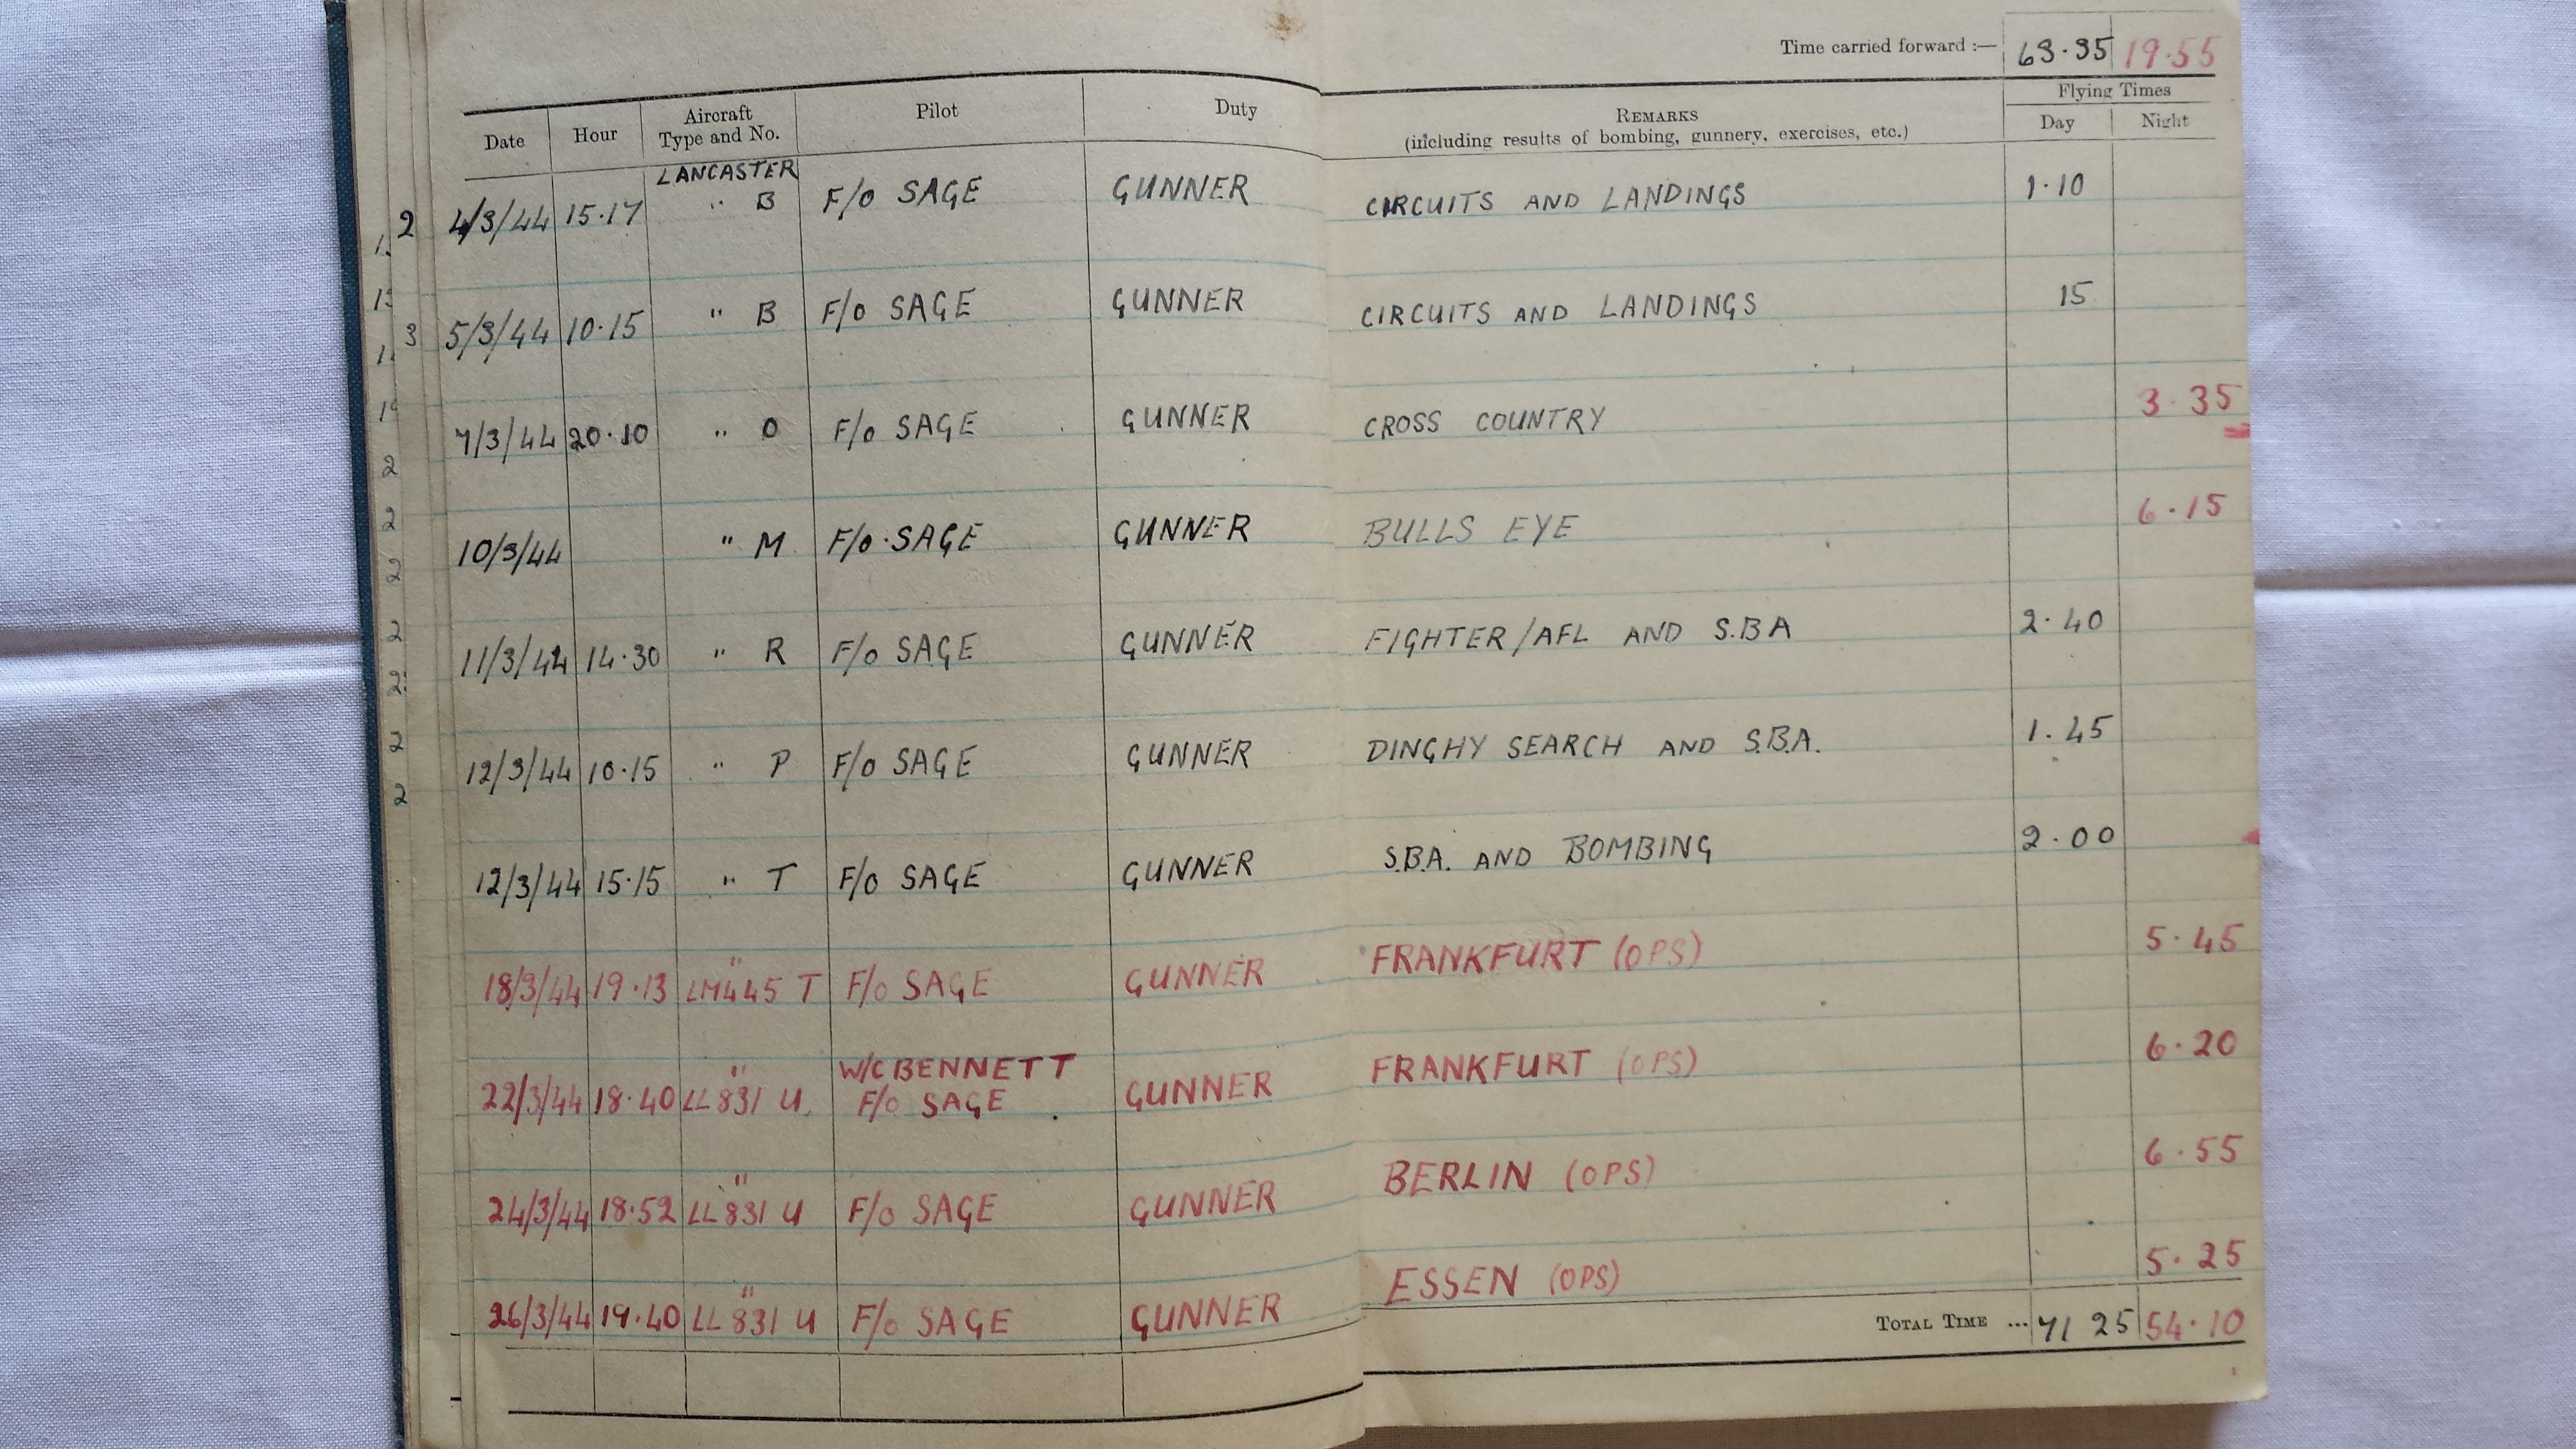 Time carried forward :— 63.35 19.55
Date Hour Aircraft Type and No. Pilot Duty REMARKS (including results of bombing, gunnery, exercises, etc.) Flying Times Day Night
LANCASTER
4/3/44 15.17 " B F/O SAGE GUNNER CIRCUITS AND LANDINGS 1.10
5/3/44 10.15 " B F/O SAGE GUNNER CIRCUITS AND LANDINGS 15
7/3/44 20.10 " O F/O SAGE GUNNER CROSS COUNTRY 3.35
10/3/44 " M F/O SAGE GUNNER BULLS EYE 6.15
11/3/44 14.30 " R F/O SAGE GUNNER FIGHTER/AFL AND S.B.A 2.40
12/3/44 10.15 " P F/O SAGE GUNNER DINGHY SEARCH AND S.B.A. 1.45
12/3/44 15.15 " T F/O SAGE GUNNER S.B.A. AND BOMBING 2.00
18/3/44 19.13 " LM445 T F/O SAGE GUNNER FRANKFURT (OPS) 5.45
W/C BENNETT
22/3/44 18.40 " LL831 U F/O SAGE GUNNER FRANKFURT (OPS) 6.20
24/3/44 18.52 " LL831 U F/O SAGE GUNNER BERLIN (OPS) 6.55
26/3/44 19.40 " LL831 U F/O SAGE GUNNER ESSEN (OPS) 5.25
TOTAL TIME ... 71 25 54.10